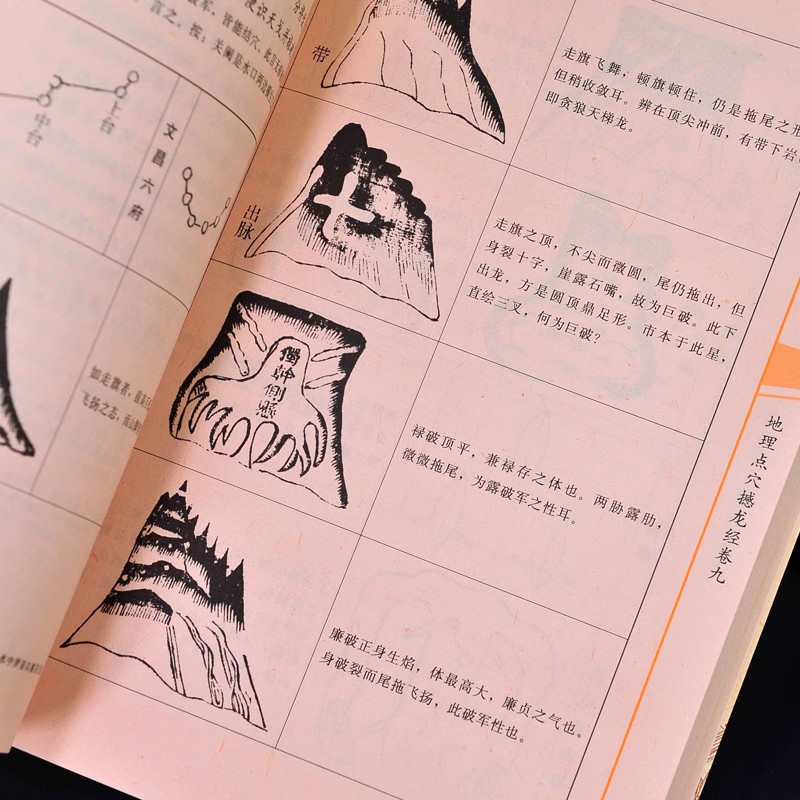 上台
中台
文昌六府
带
走旗飞舞，顿旗顿住，仍是拖尾之形
但稍收敛耳。辨在顶尖冲前，有带下岩
即贪狼天梯龙。
出脉
走旗之顶，不尖而微圆，尾仍拖出，但
身裂十字，崖露石嘴，故为巨破。此下
出龙，方是圆顶鼎足形。市本于此星，
直绘三叉，何为巨破？
禄破顶平，兼禄存之体也。两胁露肋，
微微拖尾，为露破军之性耳。
廉破正身生焰，体最高大，廉贞之气也。
身破裂而尾拖飞扬，此破军性也。
地理点穴撼龙经卷九